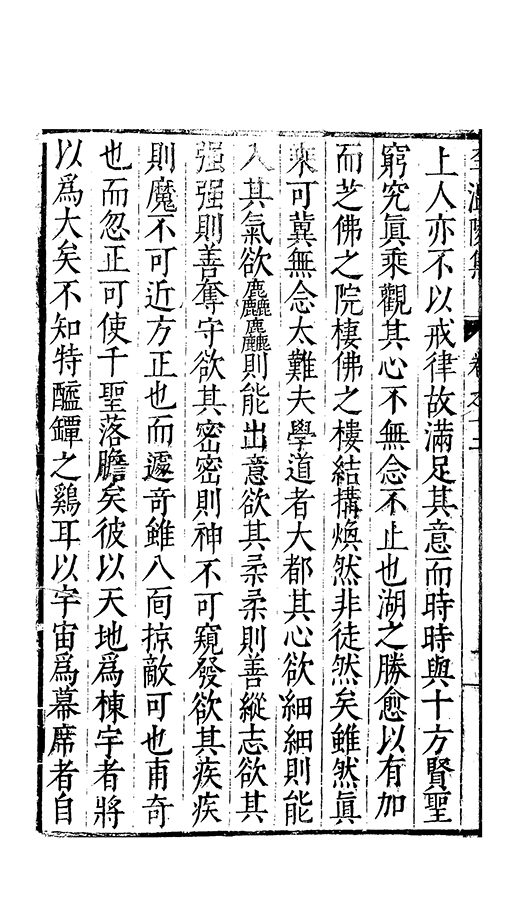 李溫陵集 卷之十二
上人亦不以戒律故滿足其意而時時與十方賢聖
窮究眞乘觀其心不無念不止也湖之勝愈以有加
而芝佛之院棲佛之樓結搆煥然非徒然矣雖然眞
乘可冀無念太難夫學道者大都其心欲細細則能
入其氣欲麤麤則能出意欲其柔柔則善縱志欲其
强强則善奪守欲其密密則神不可窺發欲其疾疾
則魔不可近方正也而遽奇雖八面掠敵可也甫奇
也而忽正可使千聖落膽矣彼以天地爲棟宇者將
以爲大矣不知特醯罈之鷄耳以宇宙爲幕席者自